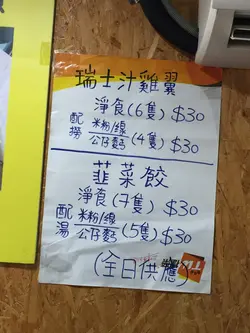 瑞士汁雞翼
淨食(6隻) $30
配撈 米粉/線 公仔麵 (4隻) $30
韮菜餃
淨食(7隻) $30
配湯 米粉/線 公仔麵 (5隻) $30
(全日供應)